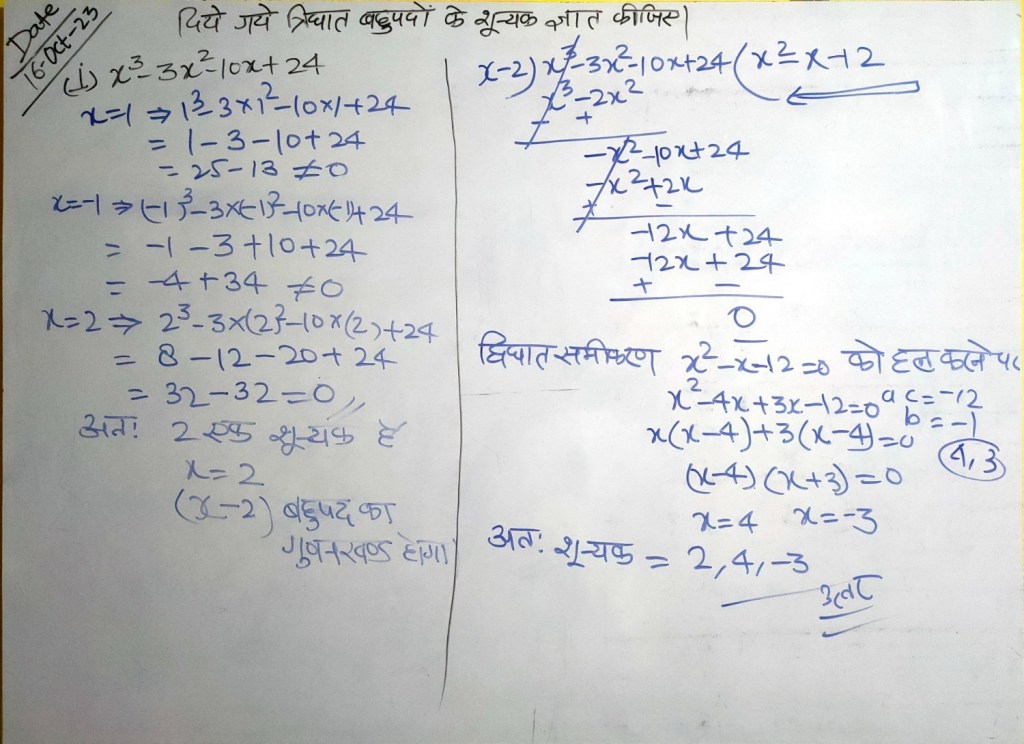 Date
16-Oct-23
दिये गये त्रिघात बहुपदों के शून्यक ज्ञात कीजिए।
(i) x³-3x²-10x+24
x=1 ⇒ 1³-3×1²-10×1+24
= 1-3-10+24
= 25-13 ≠0
x=-1 ⇒ (-1)³-3×(-1)²-10×(-1)+24
= -1-3+10+24
= -4+34 ≠0
x=2 ⇒ 2³-3×(2)²-10×(2)+24
= 8-12-20+24
= 32-32=0
अतः 2 एक शून्यक है
x=2
(x-2) बहुपद का
गुणनखण्ड होगा
x-2) x³-3x²-10x+24 (x²-x-12
x³-2x²
- +
-x²-10x+24
-x²+2x
+ -
-12x+24
-12x+24
+ -
0
द्विघात समीकरण x²-x-12=0 को हल करने पर
x²-4x+3x-12=0 ac=-12
x(x-4)+3(x-4)=0 b=-1
(x-4)(x+3)=0 4,3
x=4 x=-3
अतः शून्यक = 2,4,-3
उत्तर